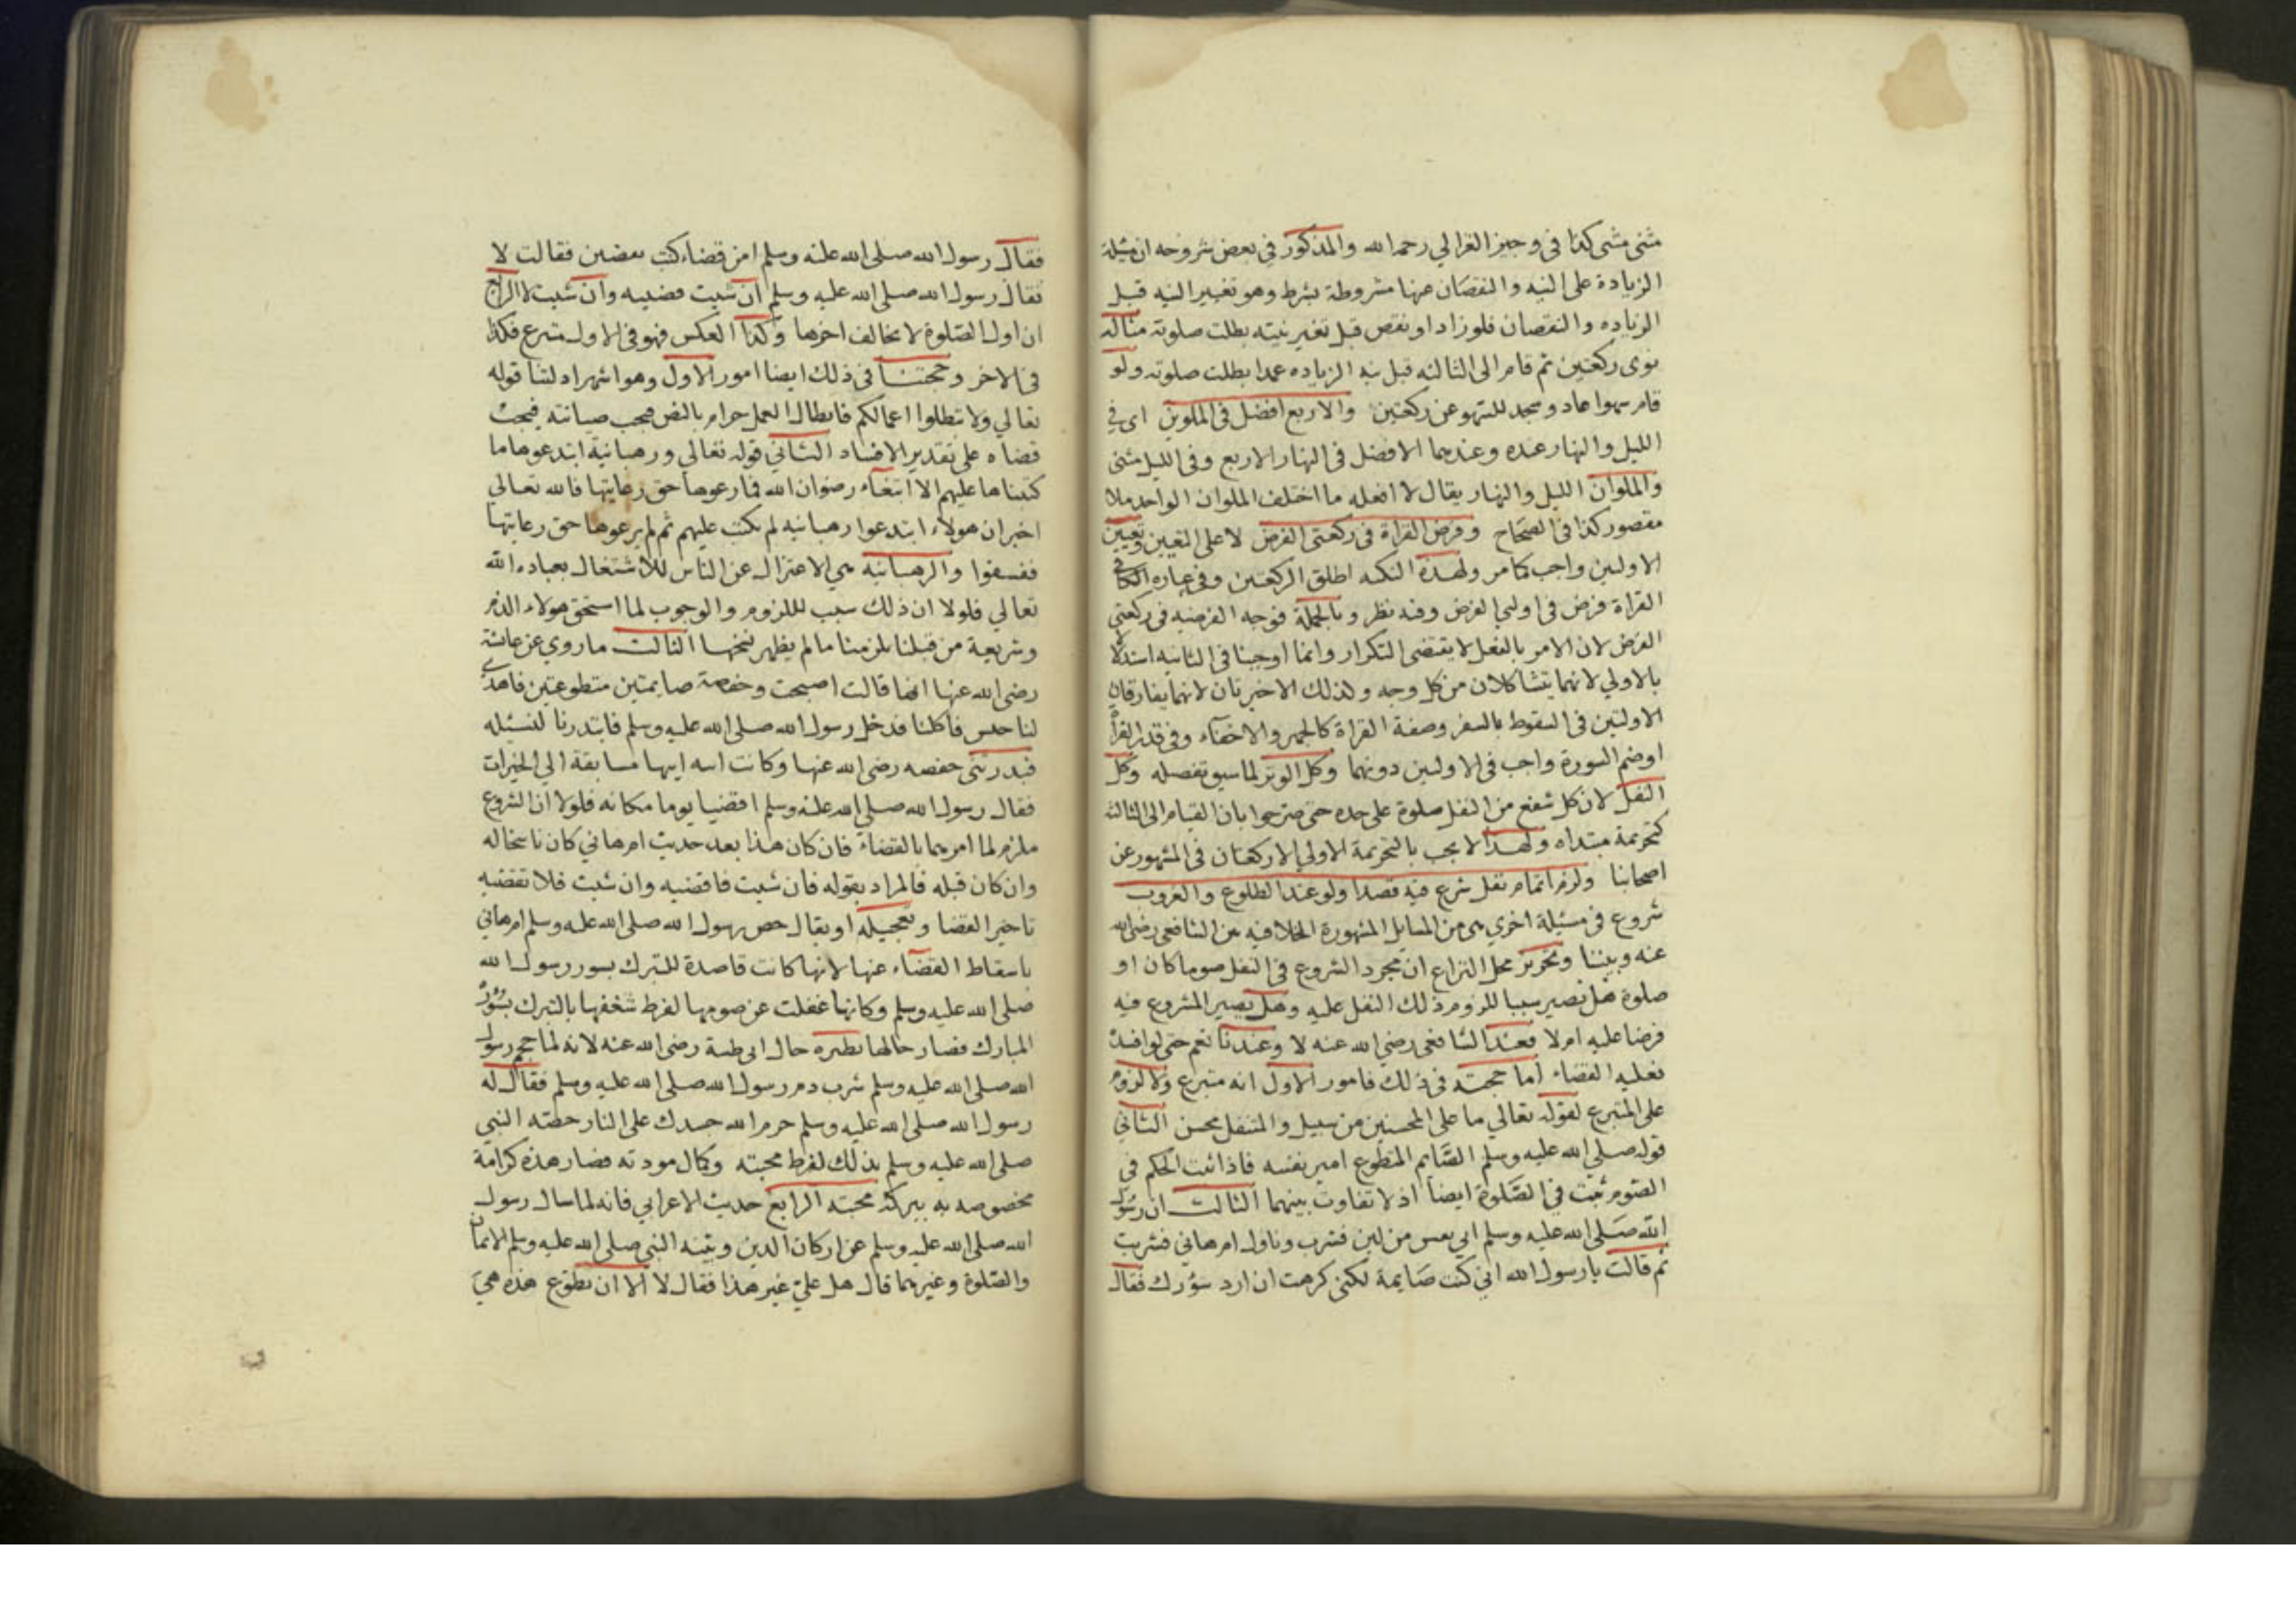 مثنى مثنى كذا فى وجيز الغزالي رحمه الله والمذكور في بعض شروحه ان مسئلة
الزيادة على النيه والنقصان عنها مشروطة بشرط وهو تغيير النيه قبل
الزياده والنقصان فلو زاد او نقص قبل تغير نيته بطلت صلوته مثاله
نوى ركعتين ثم قام الى الثالثه قبل نيه الزياده عمدا بطلت صلوته ولو
قام سهوا عاد وسجد للسهو عن ركعتين والاربع افضل فى الملوين اى في
الليل والنهار عنده وعندهما الافضل فى النهار الاربع وفى الليل مثنى
والملوان الليل والنهار يقال لا افعله ما اختلف الملوان الواحد ملا
مقصور كذا فى الصحاح وفرض القراة فى ركعتى الفرض لا على التعيين وتعيين
الاوليين واجب كما مر ولهذه النكته اطلق الركعتين وفى عباره الكافي
القراة فرض فى اوليي الفرض وفيه نظر وبالجملة فوجه الفرضيه فى ركعتى
الفرض لان الامر بالفعل لا يقتضى التكرار وانما اوجبنا فى الثانيه استدلالا
بالاولي لانهما يتشاكلان من كل وجه ولذلك الاخريان لانهما يفارقان
الاوليين فى السقوط بالسفر وصفة القراة كالجهر والاخفاء وفى قدر القراة
اوضم السورة واجب فى الاوليين دونهما وكل الوتر لما سيق تفصيله وكل
النفل لان كل شفع من النفل صلوة على حده حتى صرحوا بان القيام الى الثالثه
كتحريمة مبتداه ولهذا لا يجب بالتحريمة الاولي الا ركعتان فى المشهور عن
اصحابنا ولزم اتمام نفل شرع فيه قصدا ولو عند الطلوع والغروب
شروع فى مسئلة اخري هى من المسايل المشهورة الخلافيه بين الشافعى رضى الله
عنه وبيننا وتحرير محل النزاع ان مجرد الشروع فى النفل صوما كان او
صلوة هل يصير سببا للزوم ذلك النفل عليه وهل يصير المشروع فيه
فرضا عليه ام لا فعند الشافعى رضى الله عنه لا وعندنا نعم حتى لو افسد
فعليه القضاء اما حجته فى ذلك فامور الاول انه متبرع ولا لزوم
على المتبرع لقوله تعالي ما على المحسنين من سبيل والمتنفل محسن الثاني
قوله صلى الله عليه وسلم الصايم المتطوع امير نفسه فاذا ثبت الحكم في
الصوم ثبت في الصلوة ايضا اذ لا تفاوت بينهما الثالث ان رسول
الله صلى الله عليه وسلم اتي بعس من لبن فشرب وناول ام هاني فشربت
ثم قالت يا رسول الله اني كنت صايمة لكني كرهت ان ارد سؤرك فقال
فقال رسول الله صلى الله عليه وسلم امن قضاء كنت تقضين فقالت لا
فقال رسول الله صلى الله عليه وسلم ان شيت فضيه وان شيت لا الرابع
ان اول الصلوة لا يخالف اخرها وكذا العكس فهو فى الاول متبرع فكذا
فى الاخر وحجتنا فى ذلك ايضا امور الاول وهو اشهر ادلتنا قوله
تعالي ولا تبطلوا اعمالكم فابطال العمل حرام بالنص فيجب صيانته فيجب
قضاه على تقدير الافساد الثاني قوله تعالي ورهبانية ابتدعوها ما
كتبناها عليهم الا ابتغاء رضوان الله فما رعوها حق رعايتها فالله تعالي
اخبر ان هولاء ابتدعوا رهبانيه لم تكتب عليهم ثم لم يرعوها حق رعايتها
ففسقوا والرهبانيه هي الاعتزال عن الناس للاشتغال بعباده الله
تعالي فلولا ان ذلك سبب لللزوم والوجوب لما استحق هولاء الذم
وشريعة من قبلنا يلزمنا ما لم يظهر نسخها الثالث ما روي عن عائشة
رضى الله عنها انها قالت اصبحت وحفصة صايمتين متطوعتين فاهدي
لنا حيس فاكلنا فدخل رسول الله صلى الله عليه وسلم فابتدرنا لنسئله
فبدرتنى حفصه رضى الله عنها وكانت ابنة ابيها مسابقة الي الخيرات
فقال رسول الله صلى الله عليه وسلم اقضيا يوما مكانه فلولا ان الشروع
ملزم لما امرهما بالقضاء فان كان هذا بعد حديث ام هاني كان ناسخا له
وان كان قبله فالمراد بقوله فان شيت فاقضيه وان شيت فلا تقضيه
تاخير القضا وتعجيله او يقال خص رسول الله صلى الله عليه وسلم ام هاني
باسقاط القضاء عنها لانها كانت قاصدة للتبرك بسور رسول الله
صلى الله عليه وسلم وكانها غفلت عن صومها لفرط شغفها بالتبرك بسؤره
المبارك فصار حالها نظيره حال ابى طيبة رضى الله عنه لانه لما حجم رسول
الله صلى الله عليه وسلم شرب دم رسول الله صلى الله عليه وسلم فقال له
رسول الله صلى الله عليه وسلم حرم الله جسدك على النار خصه النبي
صلى الله عليه وسلم بذلك لفرط محبته وكمال مودته فصار هذه كرامة
مخصوصه به ببركة محبته الرابع حديث الاعرابي فانه لما سال رسول
الله صلى الله عليه وسلم عن اركان الدين وبينه النبي صلى الله عليه وسلم الايمان
والصلوة وغيرهما قال هل علي غير هذا فقال لا الا ان تطوع هذه هي